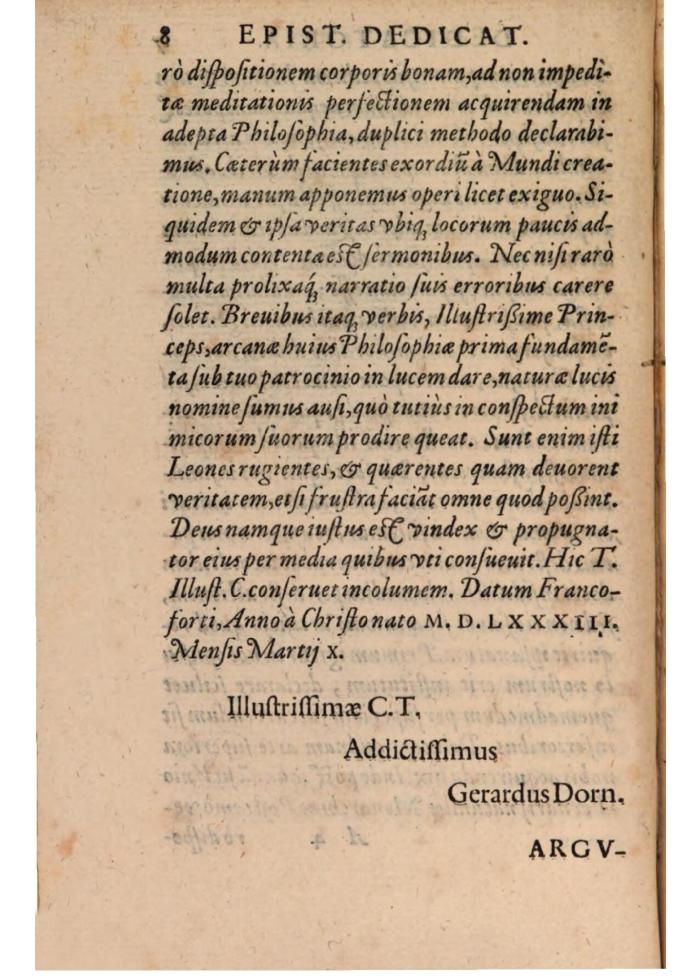 8 EPIST. DEDICAT.
rò diſpoſitionem corporis bonam, ad non impedi-
tæ meditationis perfectionem acquirendam in
adepta Philoſophia, duplici methodo declarabi-
mus. Cæterùm facientes exordiũ à Mundi crea-
tione, manum apponemus operi licet exiguo. Si-
quidem & ipſa veritas vbiq́; locorum paucis ad-
modum contenta est ſermonibus. Nec niſi rarò
multa prolixaq́; narratio ſuis erroribus carere
ſolet. Breuibus itaq; verbis, Illuſtrißime Prin-
ceps, arcanæ huius Philoſophiæ prima fundamẽ-
ta ſub tuo patrocinio in lucem dare, naturæ lucis
nomine ſumus auſi, quò tutiùs in conſpectum ini
micorum ſuorum prodire queat. Sunt enim iſti
Leones rugientes, & quærentes quam deuorent
veritatem, etſi fruſtra faciãt omne quod poßint.
Deus namque iuſtus est vindex & propugna-
tor eius per media quibus vti conſueuit. Hic T.
Illuſt. C. conſeruet incolumem. Datum Franco-
forti, Anno à Chriſto nato M. D. LXXXIII.
Menſis Martij X.
Illuſtriſſimæ C. T.
Addictiſſimus
Gerardus Dorn.
ARGV-